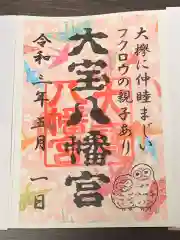 大欅に仲睦まじい
フクロウの親子あり
大宝八幡宮
令和三年五月一日